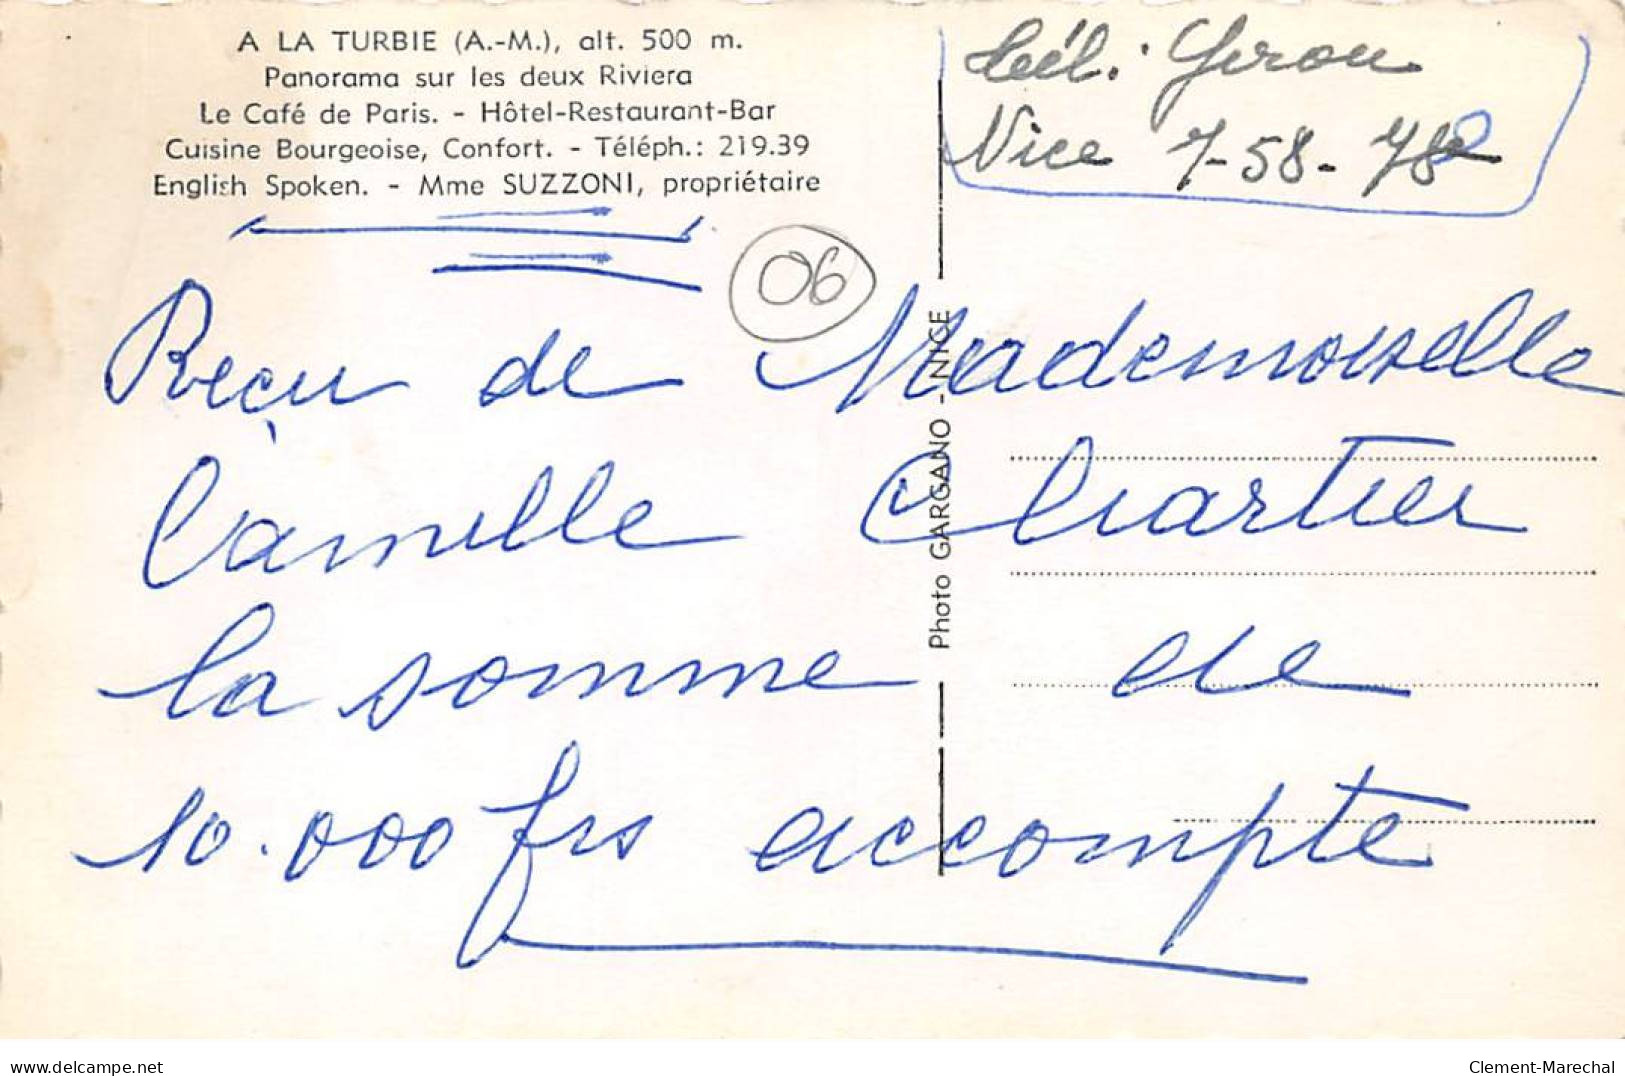 A LA TURBIE (A.-M.), alt. 500 m.
Panorama sur les deux Riviera
Le Café de Paris. - Hôtel-Restaurant-Bar
Cuisine Bourgeoise, Confort. - Téléph.: 219.39
English Spoken. - Mme SUZZONI, propriétaire
Nice 7-58-78
06
Reçu de Mademoiselle
Camille Chartier
la somme de
10.000 frs accompte
Photo GARGANO - NICE
www.delcampe.net
Clement-Marechal